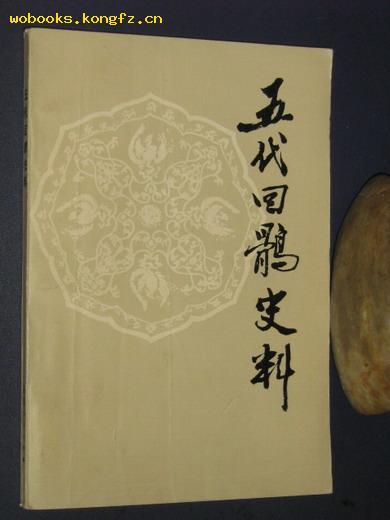 wobooks.kongfz.cn
五代回鹘史料